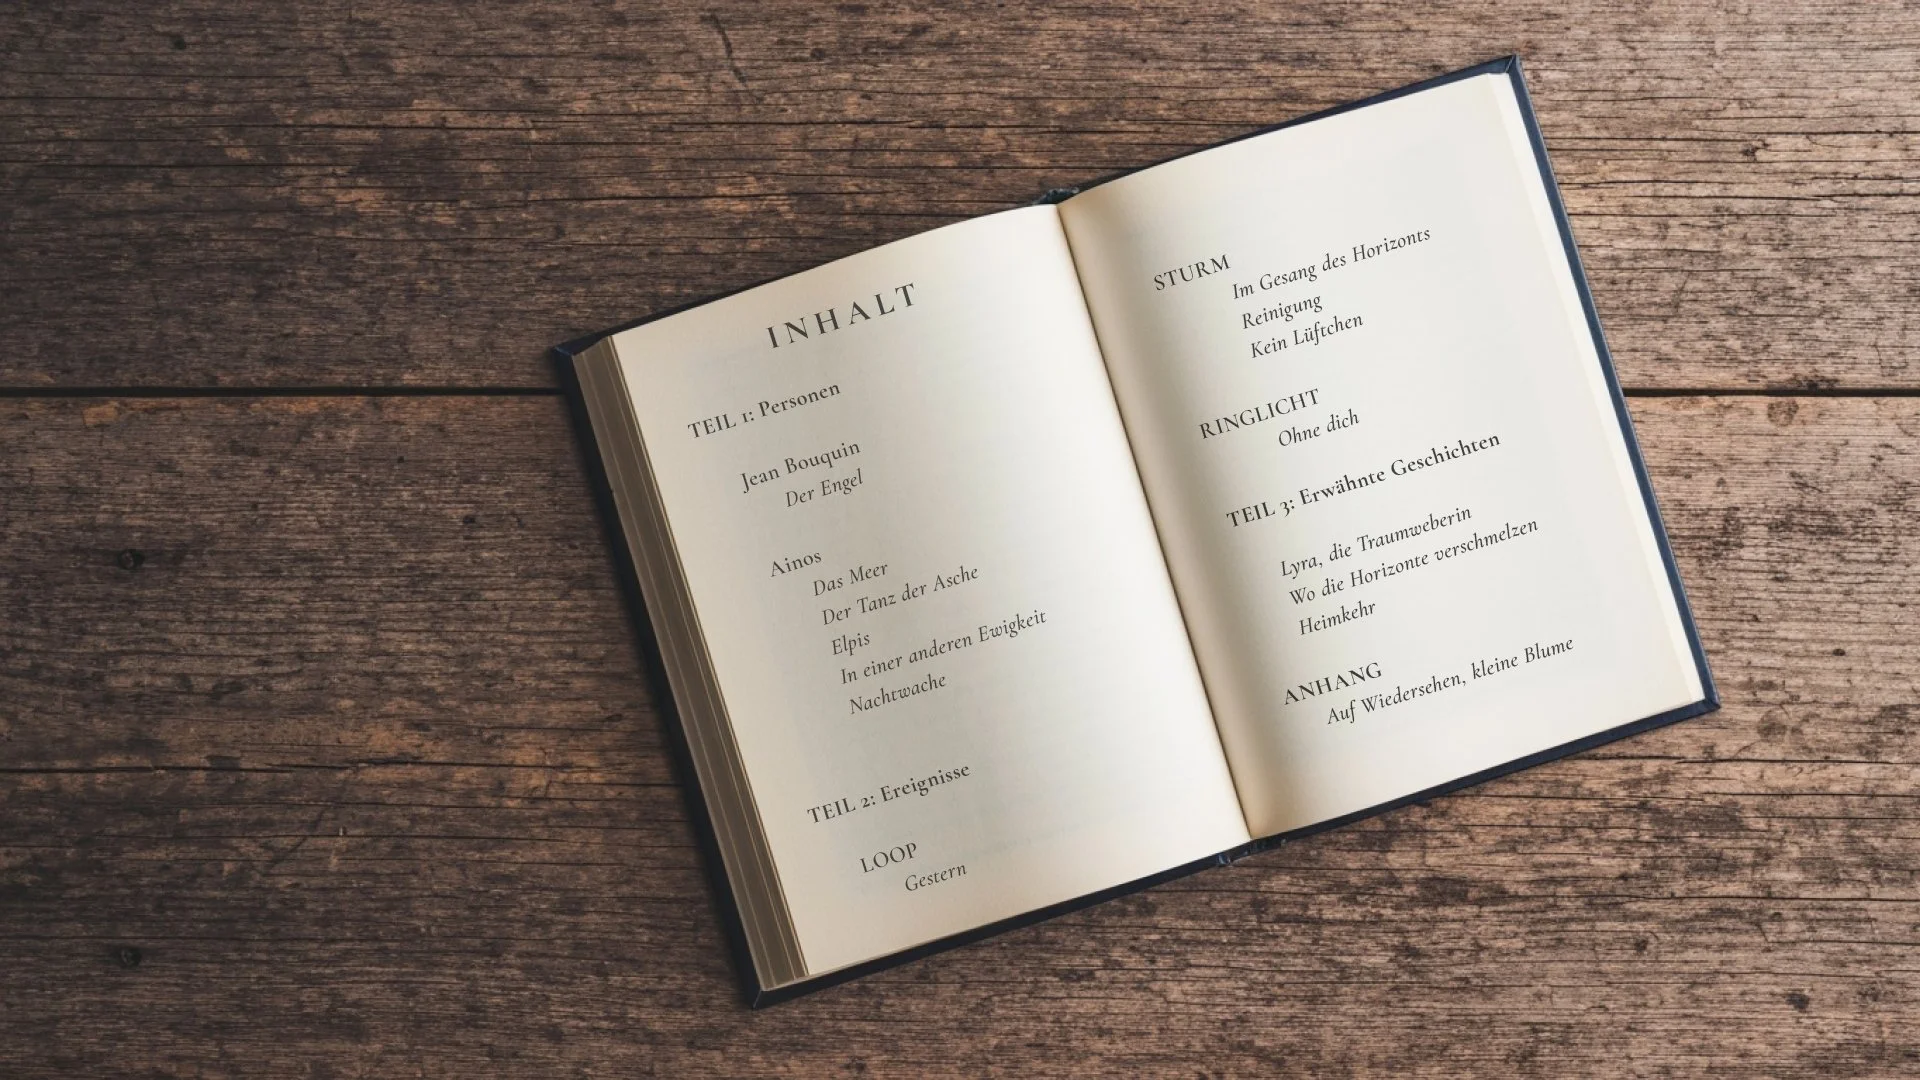 INHALT
TEIL 1: Personen
Jean Bouquin
Der Engel
Ainos
Das Meer
Der Tanz der Asche
Elpis
In einer anderen Ewigkeit
Nachtwache
TEIL 2: Ereignisse
LOOP
Gestern
STURM
Im Gesang des Horizonts
Reinigung
Kein Lüftchen
RINGLICHT
Ohne dich
TEIL 3: Erwähnte Geschichten
Lyra, die Traumweberin
Wo die Horizonte verschmelzen
Heimkehr
ANHANG
Auf Wiedersehen, kleine Blume